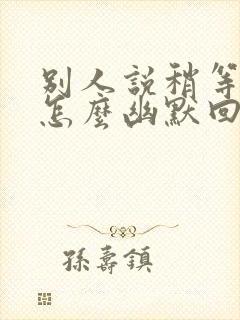 别人説稍等
怎麽幽默回
孫壽鎮